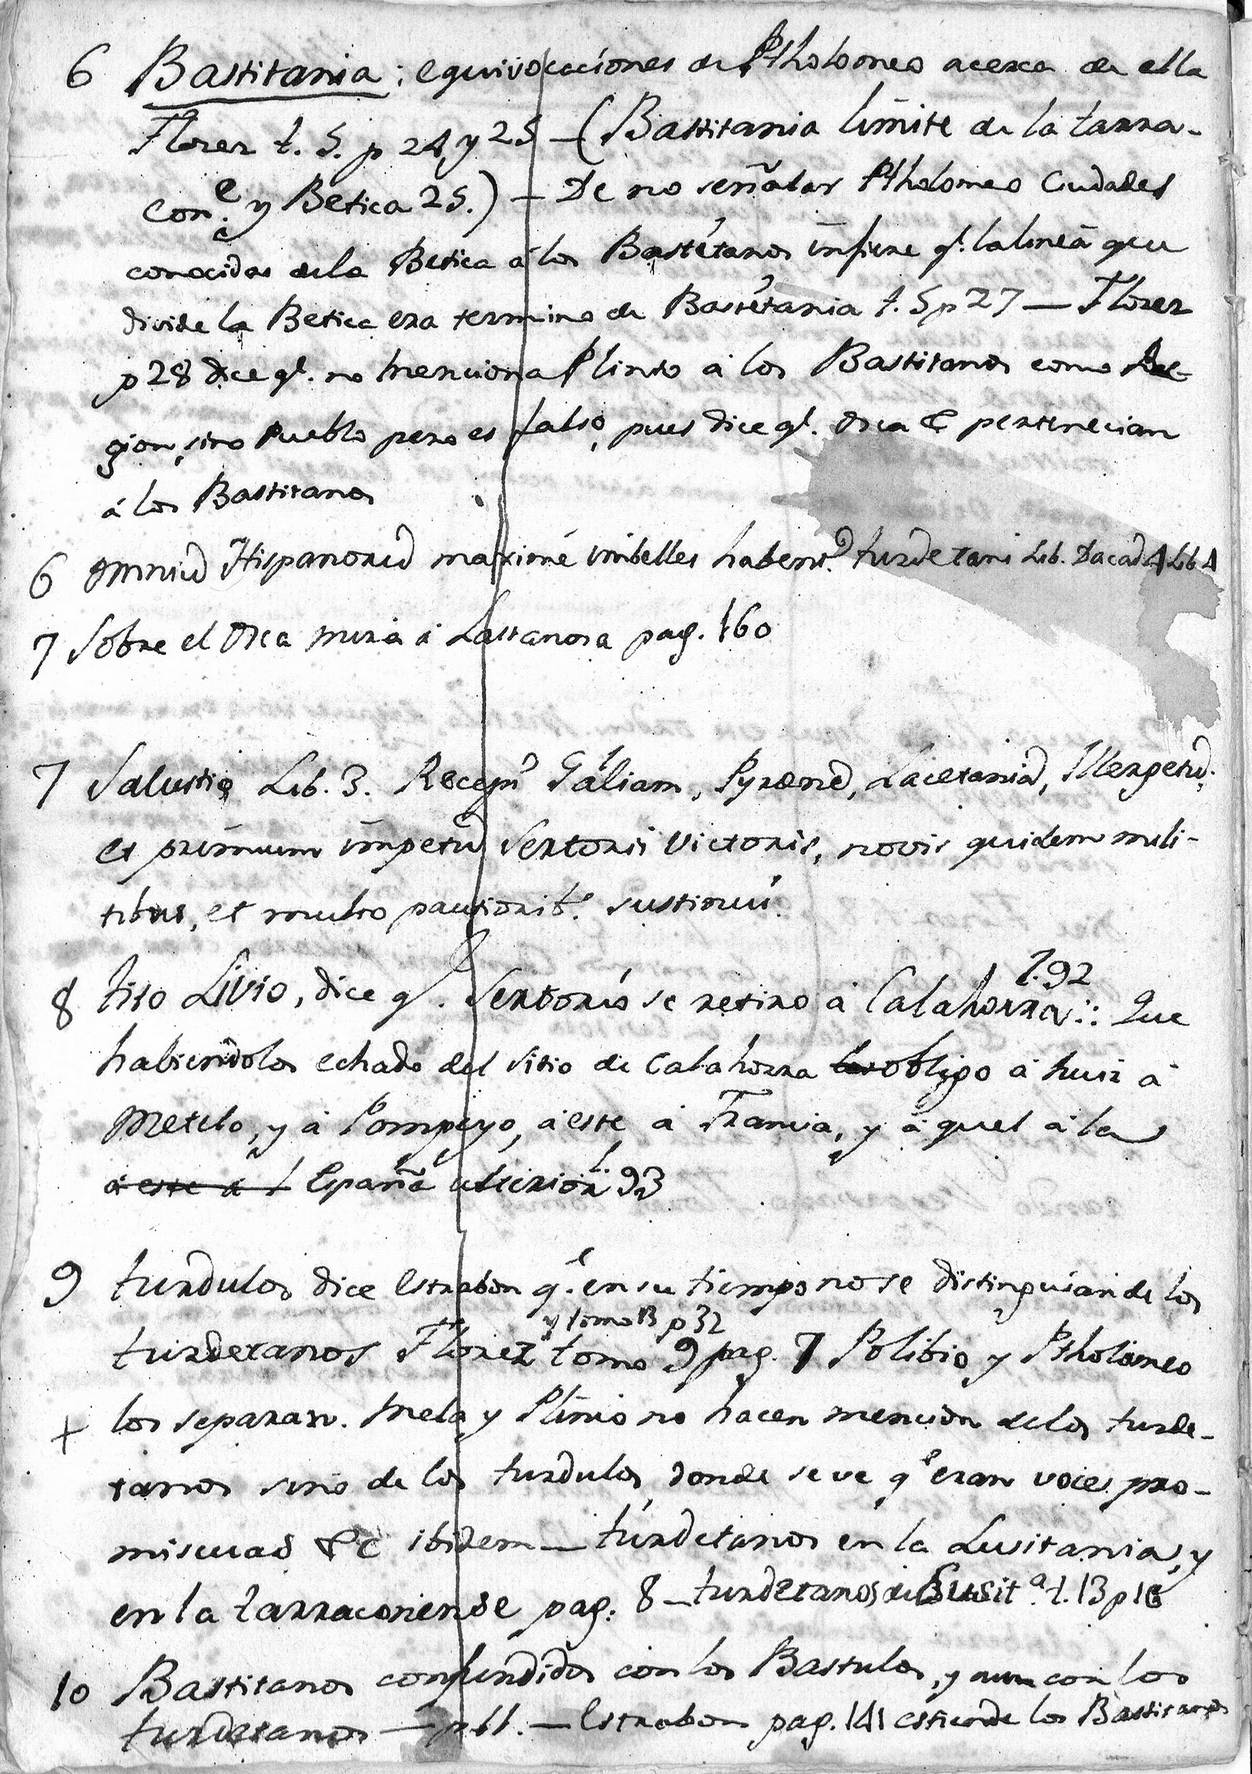 6 Bastitania; equivocaciones de Ptholomeo acerca de ella
Florez t. 5. p 24, y 25 — (Bastitania limite de la tarra-
con.e y Betica 25.) — De no señalar Ptholomeo Ciudades
conocidas de la Betica á los Bastétanos infiere q.e la linea que
divide la Betica era termino de Bastétania t. 5 p 27 — Florez
p 28 dice q.e no menciona Plinio á los Bastitanos como Re-
gion, sino Pueblo pero es falso, pues dice q.e Orca &c pertenecian
á los Bastitanos
6 Omniu Hispanoru maximé imbelles habent.r turdetani Lib. Dacad 4 Lib 4
7 Sobre el Orca mira á Lastanosa pag. 160
7 Salustio Lib. 3. Recepi Galiam, Pyrene, Lacetania, Illergetu
et primum impetu Sertorii Victoris, novis quidem mili-
tibus, et multo pautiorib.s sustinui
8 tito Livio, dice q.e Sertorio se retiro á Calahorra l.92 :: Que
habiendolos echado del sitio de Calahorra obligo á huir á
Metelo, y á Pompeyo, á este á Francia, y á quel á la
á este á l España ulterior l. 93
9 turdulos dice Estrabon q.e en su tiempo no se distinguian de los
turdetanos Florez y tomo 13 p 32 tomo 9 pag. 7 Polibio y Ptholomeo
+ los separan. Mela y Plinio no hacen mencion de los turde-
tanos sino de los turdulos, donde se ve q.e eran voces pro-
miscuas &c ibidem — turdetanos en la Lusitania, y
en la tarraconense pag. 8 — turdetanos de Lusit.a t. 13 p 16
10 Bastitanos confundidos con los Bastulos, y aun con los
turdetanos — p 11. — Estrabon pag. 141 estiende los Bastitanos